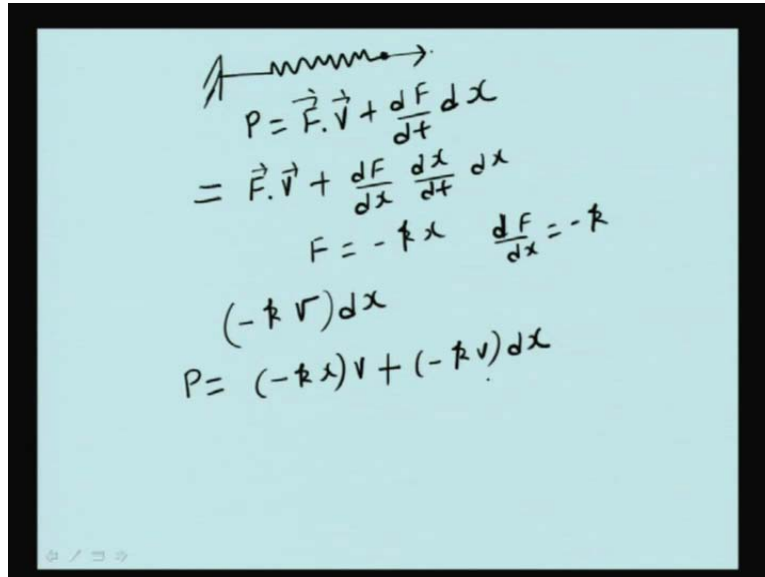 P = F⃗.V⃗ + dF/dt dx
= F⃗.V⃗ + dF/dx dx/dt dx
F = -kx dF/dx = -k
(-kv)dx
P = (-kx)v + (-kv)dx